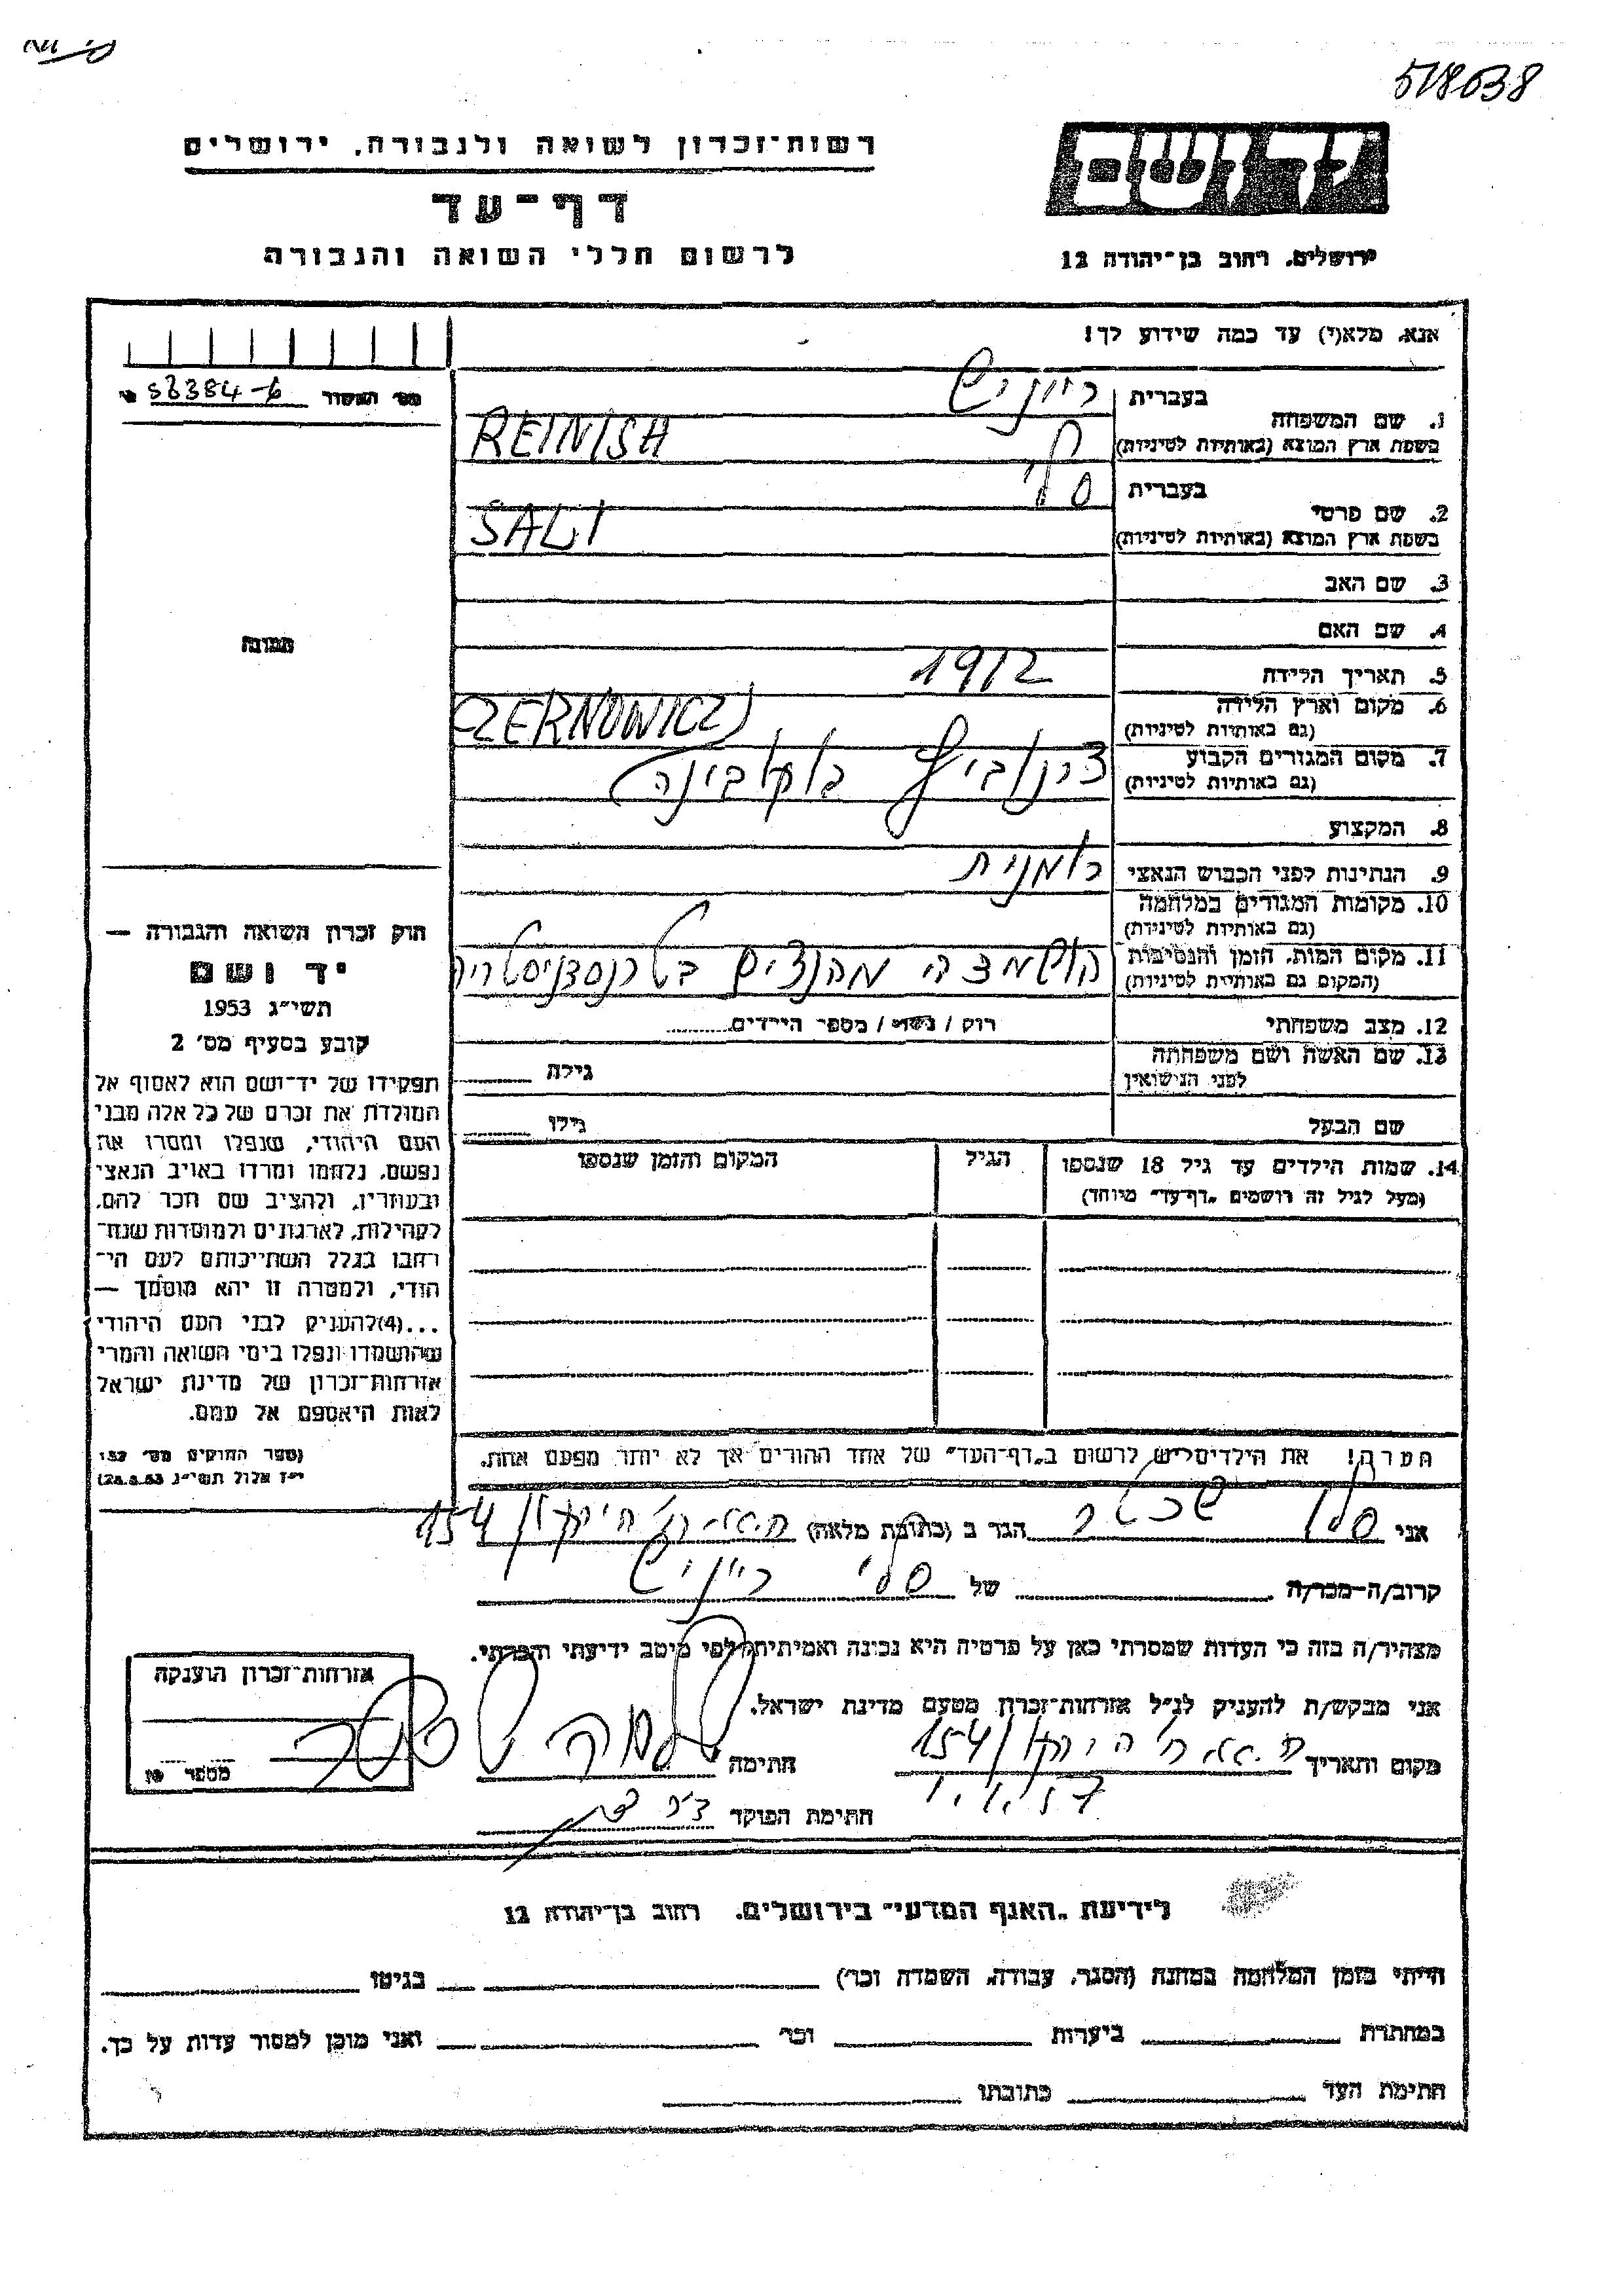 518638
רשות־זכרון לשואה ולגבורה, ירושלים
יד ושם
דף־עד
לרשום חללי השואה והגבורה
ירושלים, רחוב בן־יהודה 12
אנא, מלא(י) עד כמה שידוע לך!
מס' האשור
1. שם המשפחה
בעברית
בשפת ארץ המוצא (באותיות לטיניות)
REINISH
2. שם פרטי
בעברית סלי
בשפת ארץ המוצא (באותיות לטיניות)
SALI
3. שם האב
4. שם האם
תמונה
5. תאריך הלידה 1912
6. מקום וארץ הלידה
(גם באותיות לטיניות)
CZERNOWICZ
7. מקום המגורים הקבוע
(גם באותיות לטיניות)
8. המקצוע
9. הנתינות לפני הכבוש הנאצי רומנית
10. מקומות המגורים במלחמה
(גם באותיות לטיניות)
11. מקום המות, הזמן והנסיבות
(המקום גם באותיות לטיניות)
12. מצב משפחתי רווק / נשוי / מספר הילדים
13. שם האשה ושם משפחתה
לפני הנישואין גילה
שם הבעל גילו
14. שמות הילדים עד גיל 18 שנספו הגיל המקום והזמן שנספו
(מעל לגיל זה רושמים „דף־עד" מיוחד)
חוק זכרון השואה והגבורה —
יד ושם
תשי״ג 1953
קובע בסעיף מס׳ 2
תפקידו של יד־ושם הוא לאסוף אל
המולדת את זכרם של כל אלה מבני
העם היהודי, שנפלו ומסרו את
נפשם, נלחמו ומרדו באויב הנאצי
ובעוזריו, ולהציב שם וזכר להם,
לקהילות, לארגונים ולמוסדות שנח־
רבו בגלל השתייכותם לעם הי־
הודי, ולמטרה זו יהא מוסמך —
...(4)להעניק לבני העם היהודי
שהושמדו ונפלו בימי השואה והמרי
אזרחות־זכרון של מדינת ישראל
לאות היאספם אל עמם.
(ספר החוקים מס׳ 132
י״ז אלול תשי״ג 28.8.53)
הערה! את הילדים יש לרשום ב„דף־העד" של אחד ההורים אך לא יותר מפעם אחת.
אני הגר ב (כתובת מלאה) 154
קרוב/ה–מכר/ה של סלי
מצהיר/ה בזה כי העדות שמסרתי כאן על פרטיה היא נכונה ואמיתית, לפי מיטב ידיעתי והכרתי.
אני מבקש/ת להעניק לנ״ל אזרחות־זכרון מטעם מדינת ישראל.
מקום ותאריך 154 חתימה
חתימת הפוקד
אזרחות־זכרון הוענקה
מספר
לידיעת „האגף המדעי" בירושלים, רחוב בן־יהודה 12
הייתי בזמן המלחמה במחנה (הסגר, עבודה, השמדה וכו׳) בגיטו
במחתרת ביערות וכו׳ ואני מוכן למסור עדות על כך.
חתימת העד כתובתו